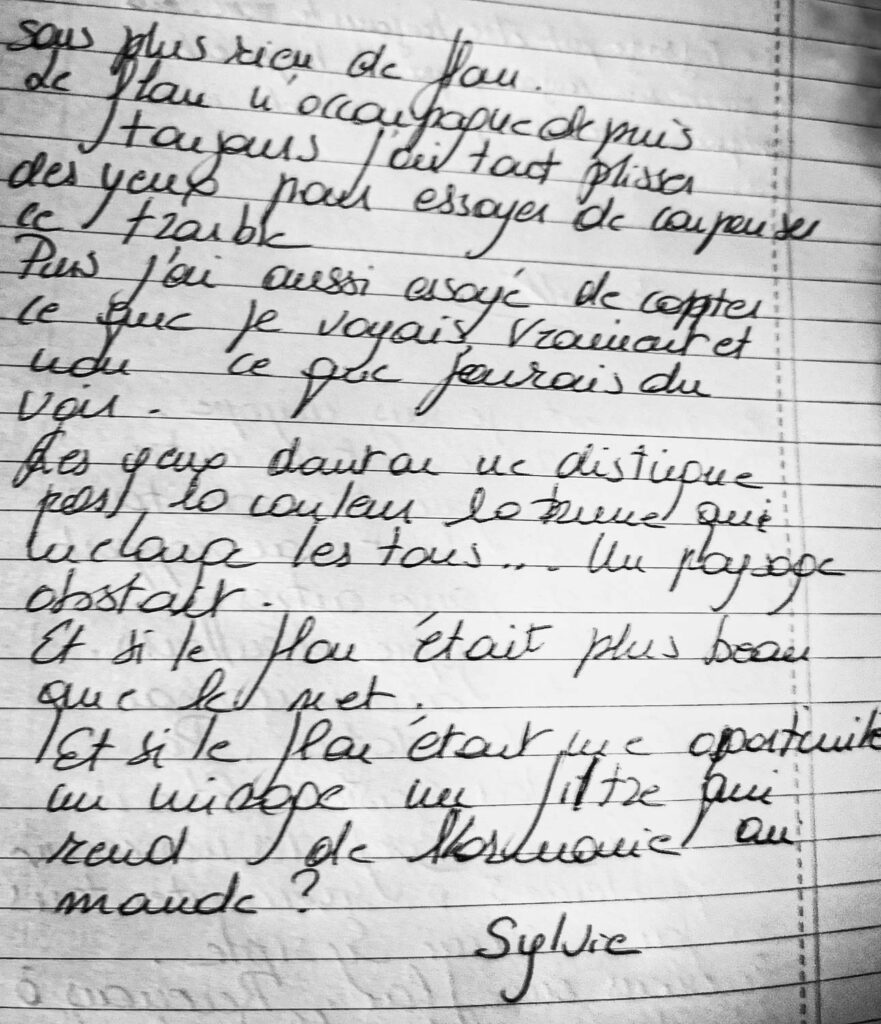 sans plus rien de flou.
Le flou m'accompagne depuis
toujours j'ai tant plisser
des yeux pour essayer de compenser
ce trouble
Puis j'ai aussi essayé de capter
ce que je voyais vraiment et
non ce que j'aurais du
voir.
Les yeux d'aurai ne distingue
pas la couleur la brume qui
mélange les tons... Un paysage
abstait.
Et si le flou était plus beau
que le net.
Et si le flou était une opportunité
un mirage un filtre qui
rend de l'harmonie au
monde ?
Sylvie